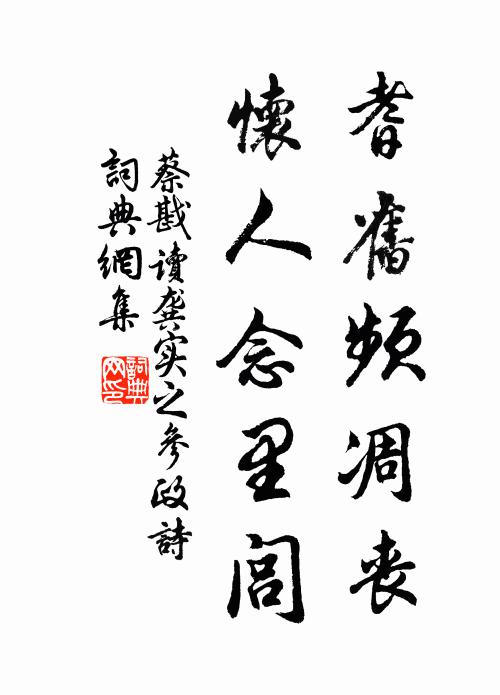 耆舊頻凋喪
懷人念里閭
蔡戡讀龔实之參政詩
詞典網集
詞典网印